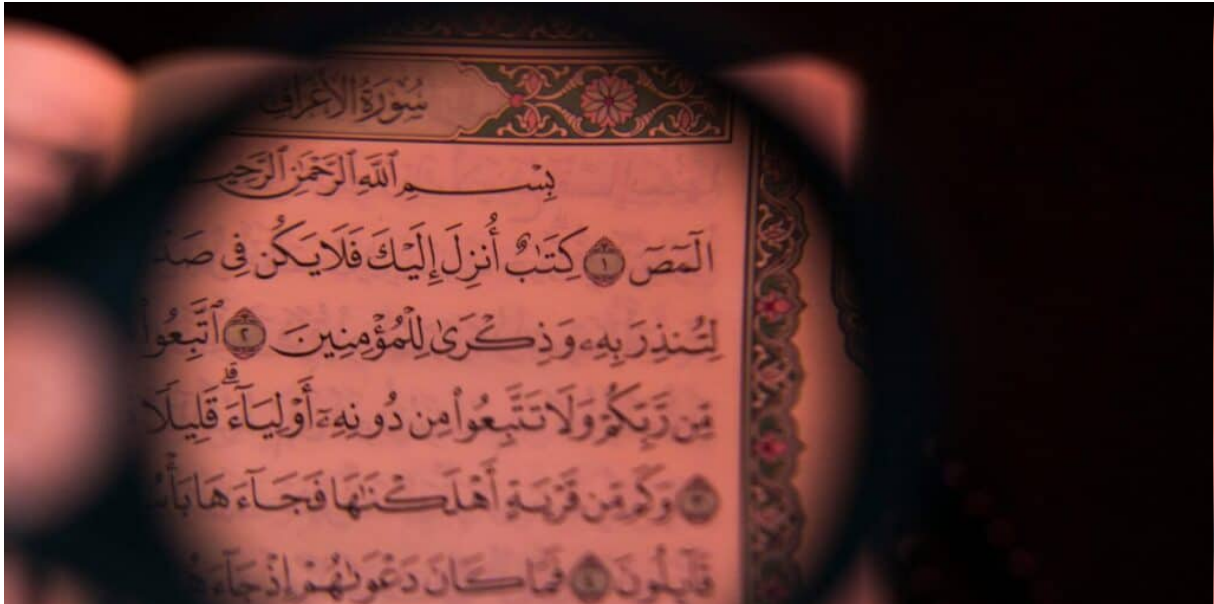 سُورَةُ الأَعْرَاف
بِسْمِ ٱللَّهِ ٱلرَّحْمَٰنِ ٱلرَّحِيـ
الٓمٓصٓ ١ كِتَٰبٌ أُنزِلَ إِلَيْكَ فَلَا يَكُن فِى
لِتُنذِرَ بِهِۦ وَذِكْرَىٰ لِلْمُؤْمِنِينَ ٢ ٱتَّبِعُوا
مِّن رَّبِّكُمْ وَلَا تَتَّبِعُوا۟ مِن دُونِهِۦٓ أَوْلِيَآءَ ۗ قَلِيلًا
٣ وَكَم مِّن قَرْيَةٍ أَهْلَكْنَٰهَا فَجَآءَهَا
قَآئِلُونَ ٤ فَمَا كَانَ دَعْوَىٰهُمْ إِذْ جَآءَ